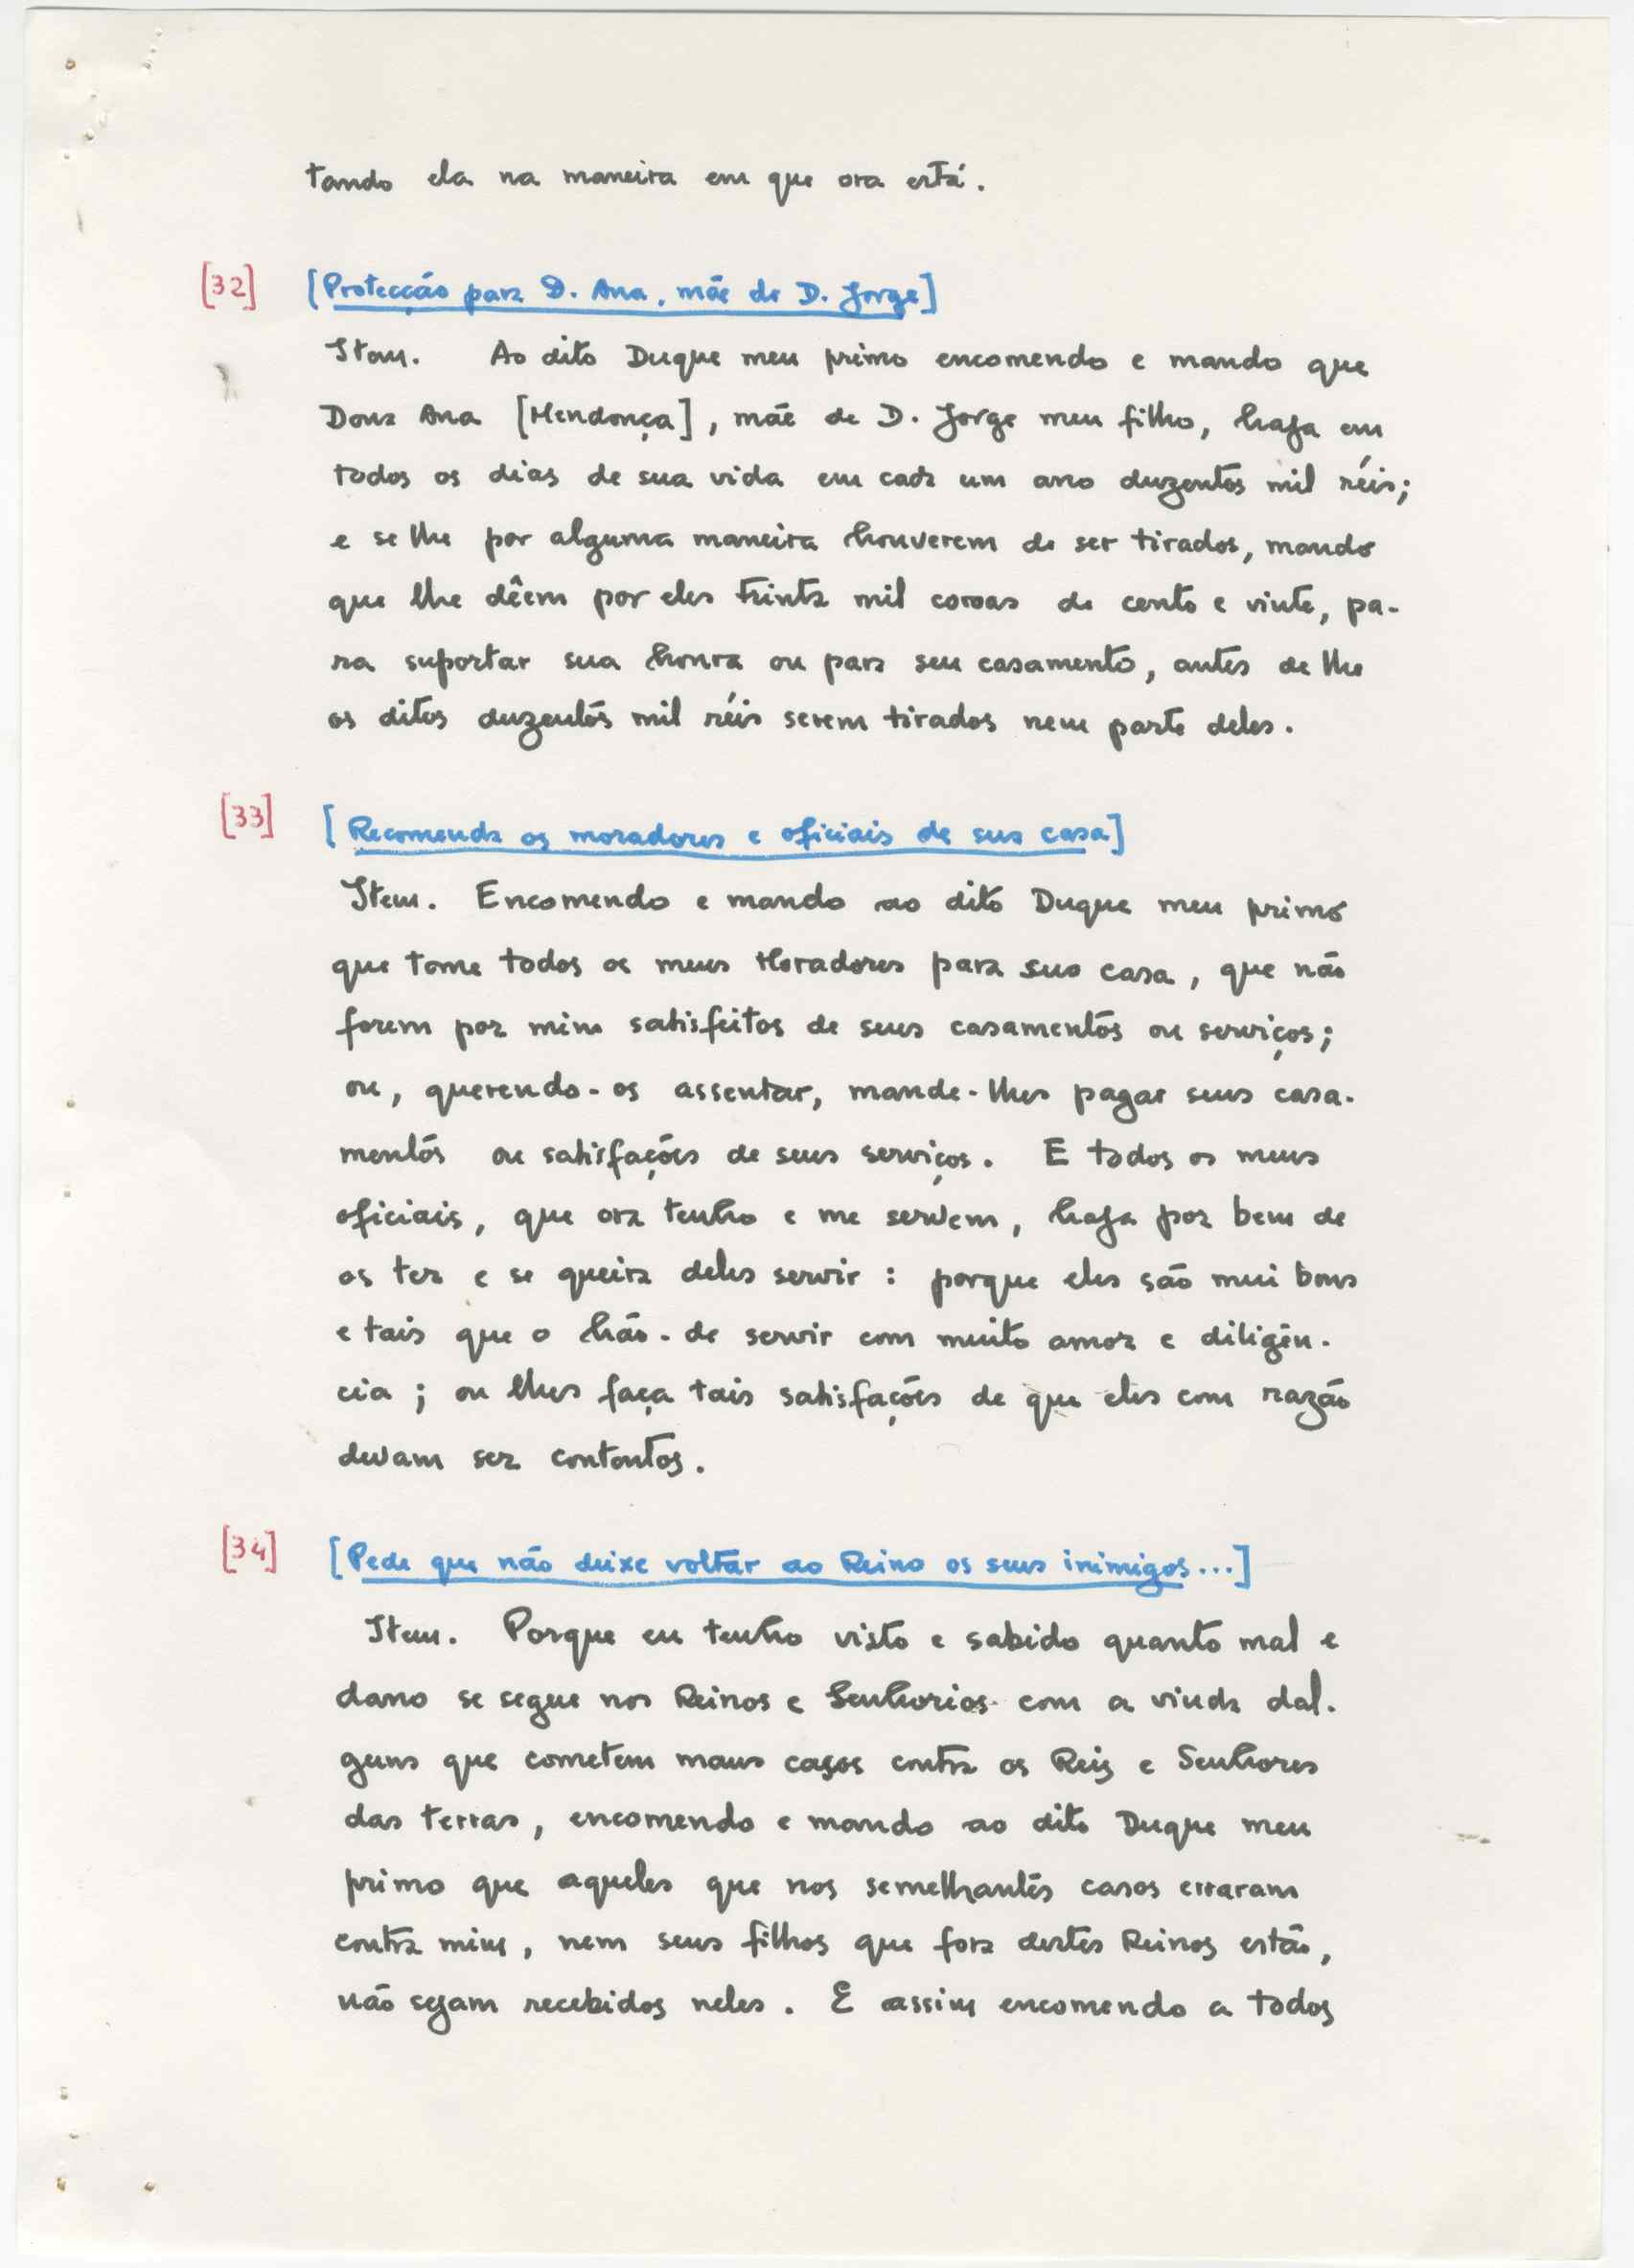 tando ela na maneira em que ora está.
[32] [Protecção para D. Ana, mãe de D. Jorge]
Item. Ao dito Duque meu primo encomendo e mando que
Dona Ana [Mendonça], mãe de D. Jorge meu filho, haja em
todos os dias de sua vida em cada um ano duzentos mil réis;
e se lhe por alguma maneira houverem de ser tirados, mando
que lhe dêem por eles trinta mil coroas de cento e vinte, pa-
ra suportar sua honra ou para seu casamento, antes de lhe
os ditos duzentos mil réis serem tirados nem parte deles.
[33] [Recomenda os moradores e oficiais de sua casa]
Item. Encomendo e mando ao dito Duque meu primo
que tome todos os meus Moradores para sua casa, que não
forem por mim satisfeitos de seus casamentos ou serviços;
ou, querendo-os assentar, mande-lhes pagar seus casa-
mentos ou satisfações de seus serviços. E todos os meus
oficiais, que ora tenho e me servem, haja por bem de
os ter e se queira deles servir: porque eles são mui bons
e tais que o hão-de servir com muito amor e diligên-
cia; ou lhes faça tais satisfações de que eles com razão
devam ser contentos.
[34] [Pede que não deixe voltar ao Reino os seus inimigos...]
Item. Porque eu tenho visto e sabido quanto mal e
dano se segue nos Reinos e Senhorios com a vinda dal-
guns que cometem maus casos contra os Reis e Senhores
das terras, encomendo e mando ao dito Duque meu
primo que aqueles que nos semelhantes casos erraram
contra mim, nem seus filhos que fora destes Reinos estão,
não sejam recebidos neles. E assim encomendo a todos